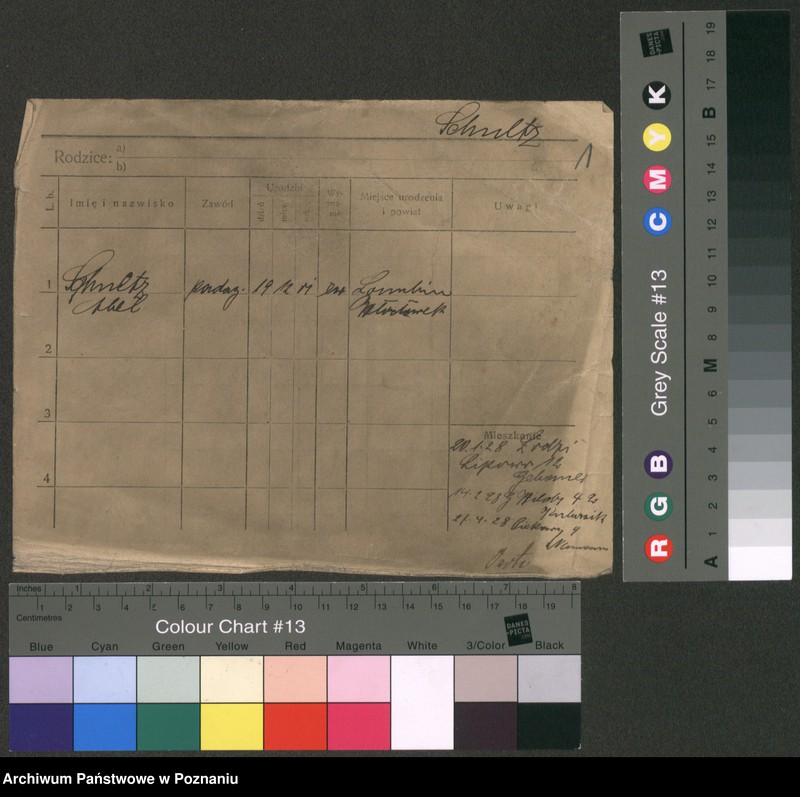 Schultz
1
Rodzice: a)
b)
L. b.
Imię i nazwisko
Zawód
Urodzin
dzień
Miejsce urodzenia
i powiat
Uwagi
1
Schultz
Abel
19 12
Włocławek
2
3
4
Mieszkanie
20.1.28 z Łodzi
Lipowa 12
4 2
21.4.28 Piekary 9
Inches 1 2 3 4 5 6 7 8
Centimetres 1 2 3 4 5 6 7 8 9 10 11 12 13 14 15 16 17 18 19
Colour Chart #13
DANES-PICTA.COM
Blue Cyan Green Yellow Red Magenta White 3/Color Black
Grey Scale #13
R G B C M Y K
DANES-PICTA.COM
A 1 2 3 4 5 M 6 7 8 9 10 11 12 13 14 15 B 17 18 19
Archiwum Państwowe w Poznaniu